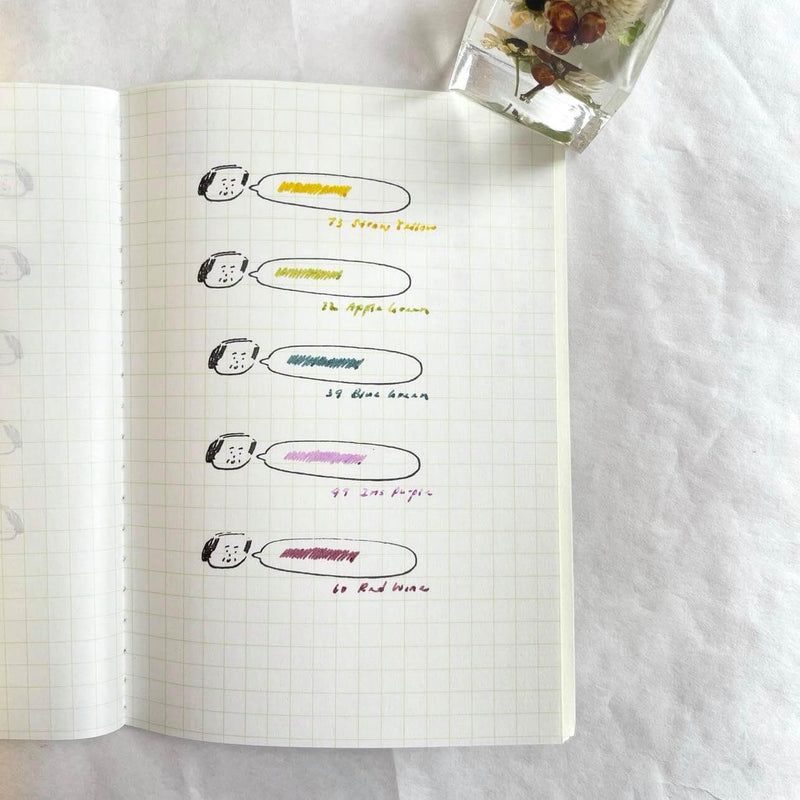 73 Straw Yellow
22 Apple Green
39 Blue Green
99 Iris Purple
60 Red Wine